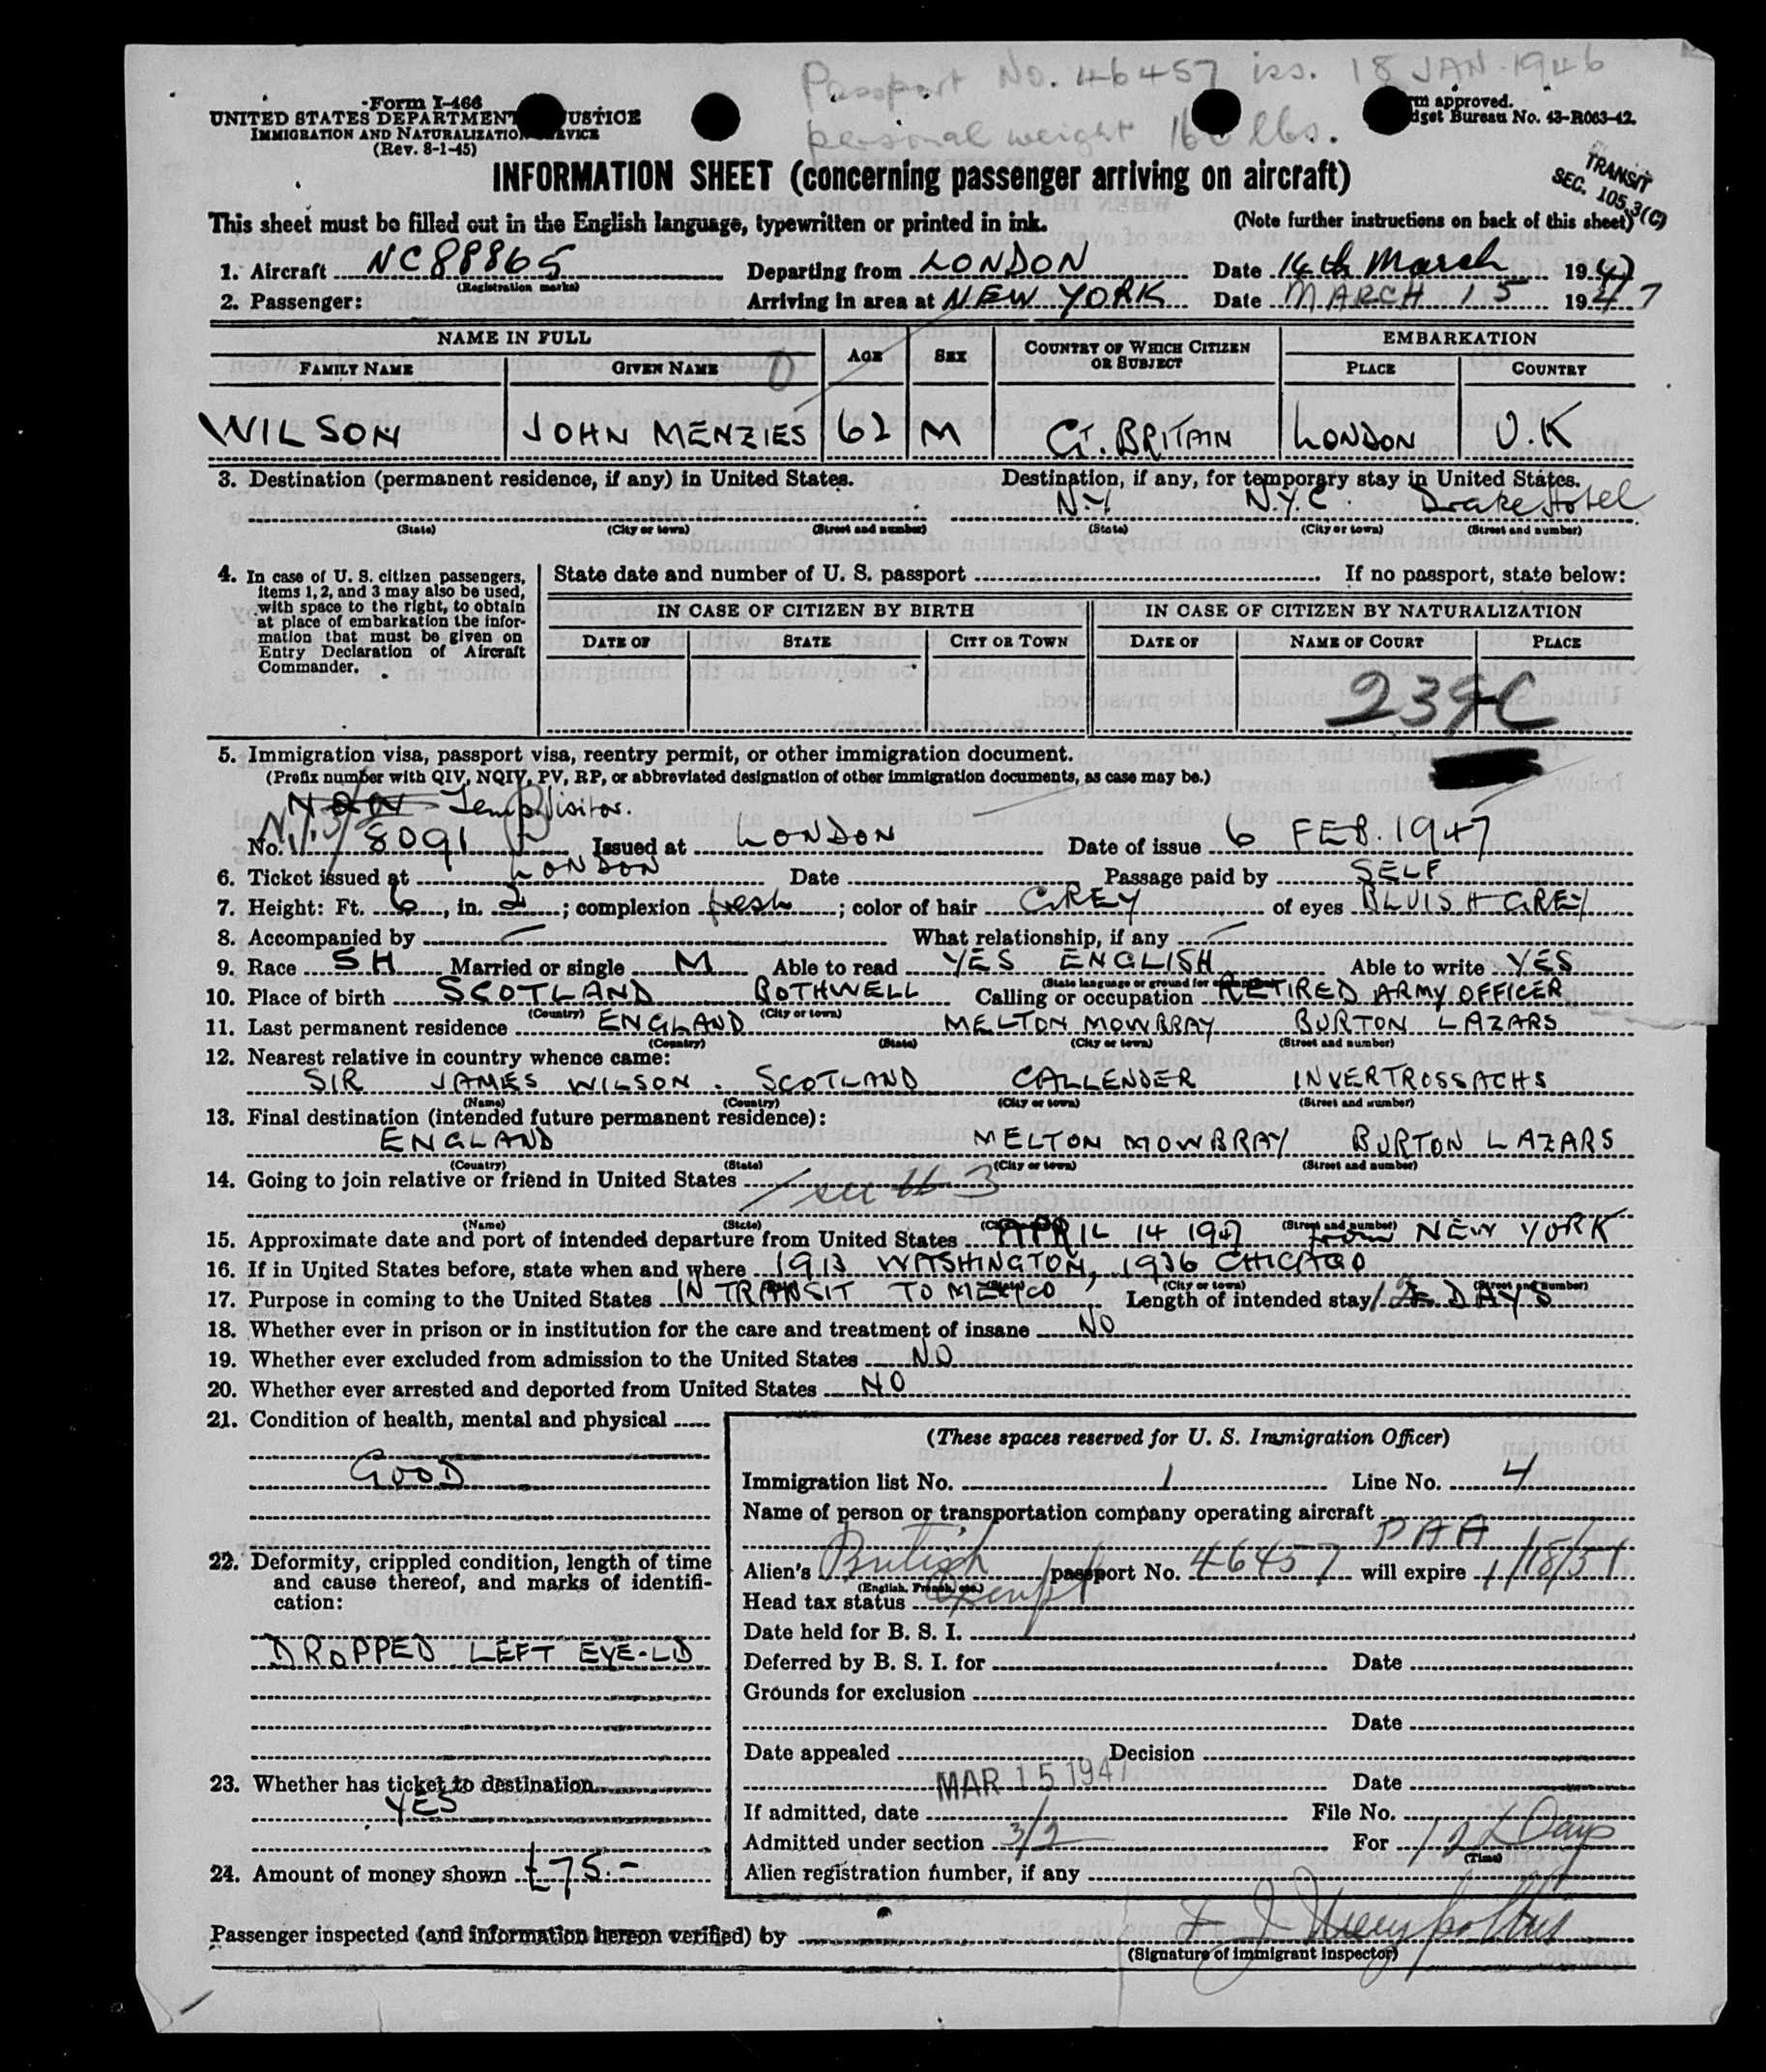 Passport No. 46457 iss. 18 JAN. 1946
personal weight lbs.
Form I-466
UNITED STATES DEPARTMENT USTICE
IMMIGRATION AND NATURALIZATIO RVICE
(Rev. 8-1-45)
rm approved.
dget Bureau No. 43-R063-42.
INFORMATION SHEET (concerning passenger arriving on aircraft)
TRANSIT
SEC. 105.3(C)
This sheet must be filled out in the English language, typewritten or printed in ink. (Note further instructions on back of this sheet)
1. Aircraft NC88865 Departing from LONDON Date 14th March 1947
(Registration marks)
2. Passenger: Arriving in area at NEW YORK Date MARCH 15 1947
NAME IN FULL AGE SEX COUNTRY OF WHICH CITIZEN OR SUBJECT EMBARKATION
FAMILY NAME GIVEN NAME PLACE COUNTRY
WILSON JOHN MENZIES 62 M GT. BRITAIN LONDON U.K
3. Destination (permanent residence, if any) in United States. Destination, if any, for temporary stay in United States.
N.Y. N.Y.C. Drake Hotel
(State) (City or town) (Street and number) (State) (City or town) (Street and number)
4. In case of U. S. citizen passengers, items 1, 2, and 3 may also be used, with space to the right, to obtain at place of embarkation the information that must be given on Entry Declaration of Aircraft Commander.
State date and number of U. S. passport If no passport, state below:
IN CASE OF CITIZEN BY BIRTH IN CASE OF CITIZEN BY NATURALIZATION
DATE OF STATE CITY OR TOWN DATE OF NAME OF COURT PLACE
5. Immigration visa, passport visa, reentry permit, or other immigration document.
(Prefix number with QIV, NQIV, PV, RP, or abbreviated designation of other immigration documents, as case may be.)
Temp Visitor.
No. 8091 Issued at LONDON Date of issue 6 FEB. 1947
6. Ticket issued at LONDON Date Passage paid by SELF
7. Height: Ft. 6, in. 2; complexion fresh; color of hair GREY of eyes BLUISH GREY
8. Accompanied by — What relationship, if any —
9. Race SH Married or single M Able to read YES ENGLISH Able to write YES
10. Place of birth SCOTLAND BOTHWELL Calling or occupation RETIRED ARMY OFFICER
(Country) (City or town)
11. Last permanent residence ENGLAND MELTON MOWBRAY BURTON LAZARS
(Country) (State) (City or town) (Street and number)
12. Nearest relative in country whence came:
SIR JAMES WILSON. SCOTLAND CALLENDER INVERTROSSACHS
(Name) (Country) (City or town) (Street and number)
13. Final destination (intended future permanent residence):
ENGLAND MELTON MOWBRAY BURTON LAZARS
(Country) (State) (City or town) (Street and number)
14. Going to join relative or friend in United States see 3
(Name) (State) (Street and number)
15. Approximate date and port of intended departure from United States APRIL 14 1947 from NEW YORK
16. If in United States before, state when and where 1913 WASHINGTON, 1936 CHICAGO
(State) (City or town) (Street and number)
17. Purpose in coming to the United States IN TRANSIT TO MEXICO Length of intended stay DAYS
18. Whether ever in prison or in institution for the care and treatment of insane NO
19. Whether ever excluded from admission to the United States NO
20. Whether ever arrested and deported from United States NO
21. Condition of health, mental and physical
GOOD
22. Deformity, crippled condition, length of time and cause thereof, and marks of identification:
DROPPED LEFT EYE-LID
23. Whether has ticket to destination
YES
24. Amount of money shown £75.-
(These spaces reserved for U. S. Immigration Officer)
Immigration list No. 1 Line No. 4
Name of person or transportation company operating aircraft
PAA
Alien's British passport No. 46457 will expire 1/18/51
(English, French, etc.)
Head tax status Exempt
Date held for B. S. I.
Deferred by B. S. I. for Date
Grounds for exclusion
Date
Date appealed Decision
MAR 15 1947 Date
If admitted, date File No.
Admitted under section 3/2 For 12 Days
(Time)
Alien registration number, if any
Passenger inspected (and information hereon verified) by
(Signature of immigrant inspector)